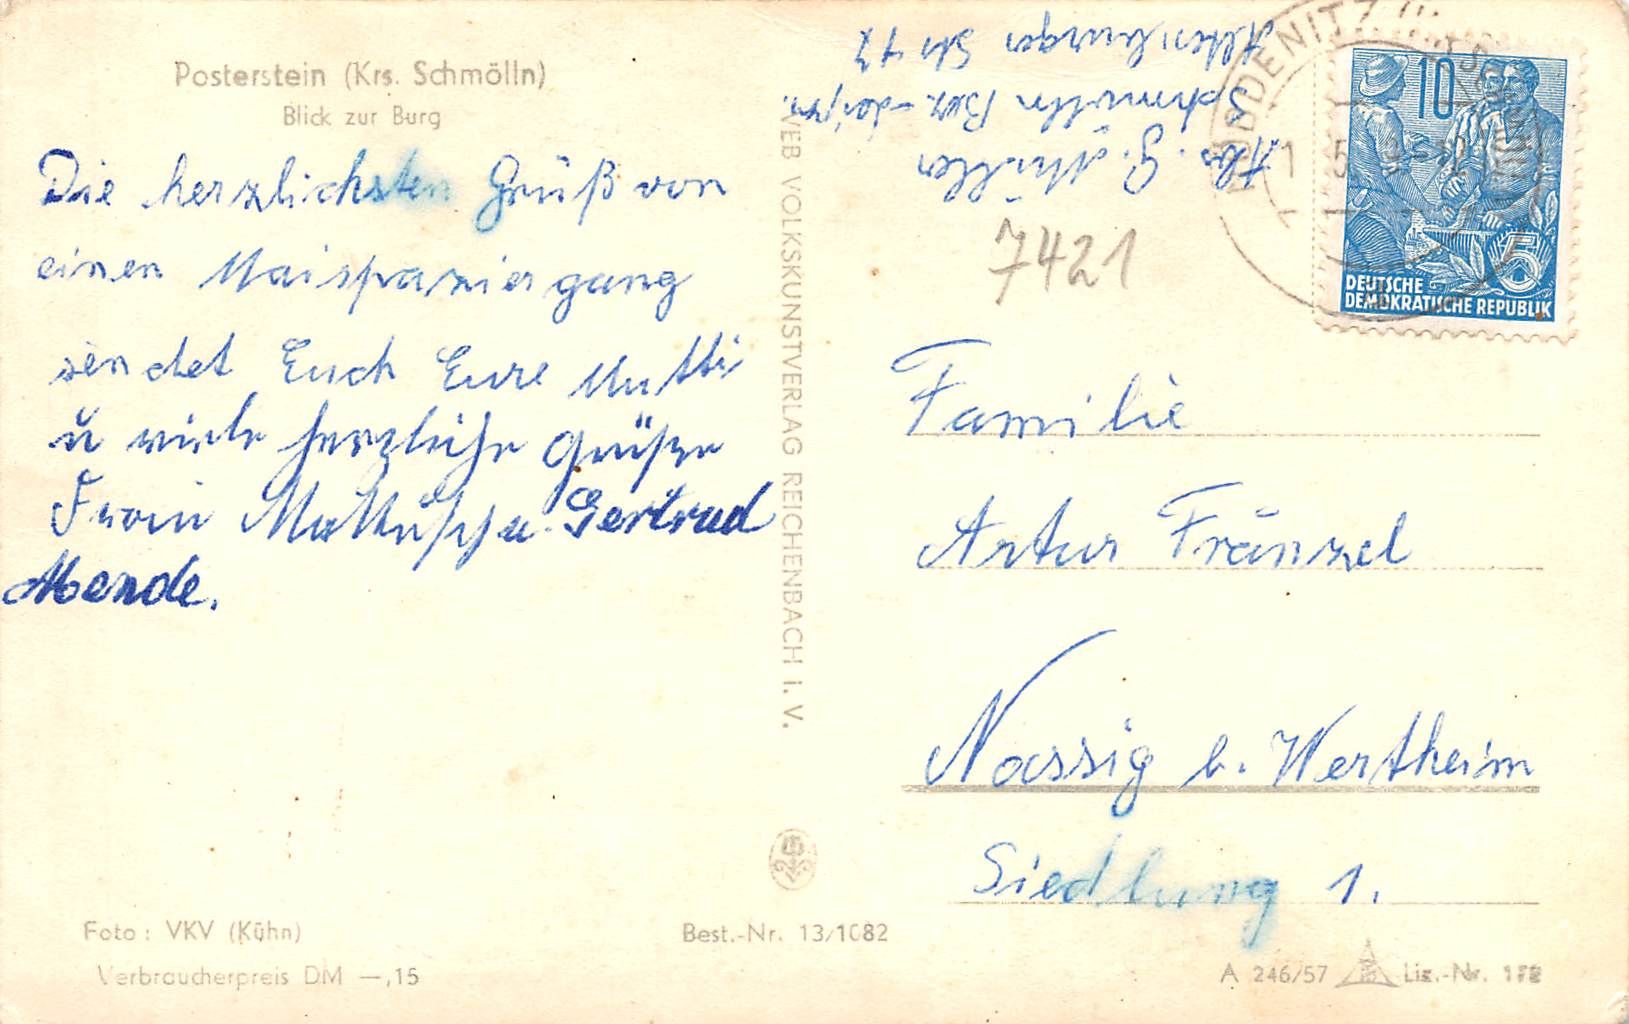 Posterstein (Krs. Schmölln)
Blick zur Burg
Die herzlichsten Grüß von
einen Maispaziergang
sendet Euch Eure Mutti
u viele herzliche Grüße
Gertrud
Abs. G. Müller
Schmölln Bez.
Altenburger Str
7421
10
5
DEUTSCHE
DEMOKRATISCHE REPUBLIK
VEB VOLKSKUNSTVERLAG REICHENBACH i. V.
Familie
Artur Fränzel
Nassig b. Wertheim
Siedlung 1.
Foto: VKV (Kühn)
Verbraucherpreis DM —,15
Best.-Nr. 13/1082
A 246/57
Liz.-Nr.